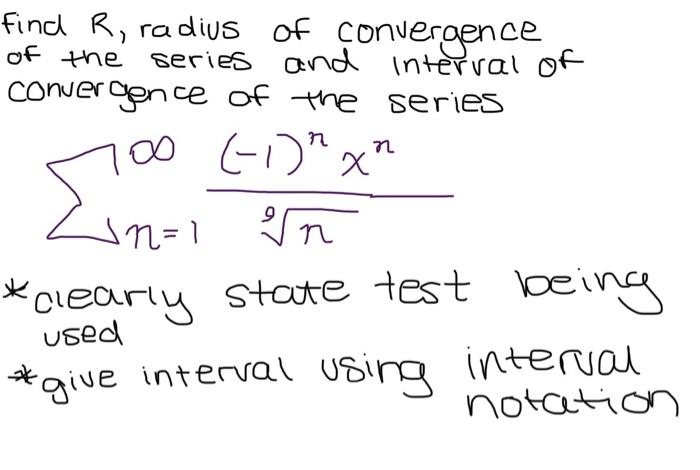 Find R, radius of convergence
of the series and interval of
convergence of the series
∑_{n=1}^{∞} \frac{(-1)^n x^n}{\sqrt[9]{n}}
*clearly state test being
used
*give interval using interval
notation